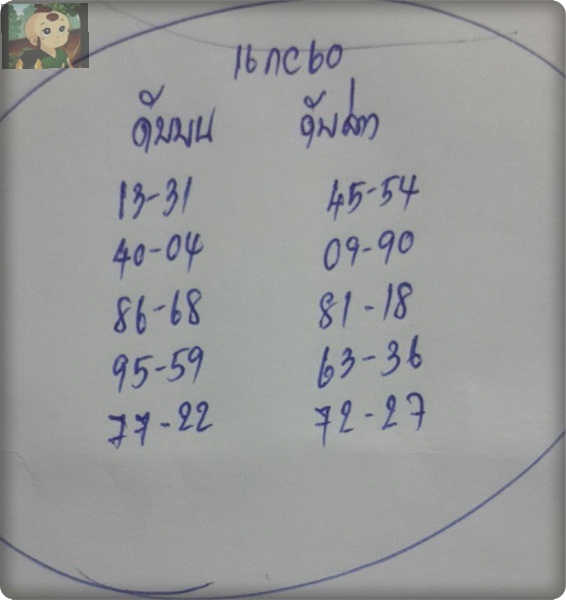 16 กC 60
ดับบน ดับล่าง
13-31 45-54
40-04 09-90
86-68 81-18
95-59 63-36
77-22 72-27